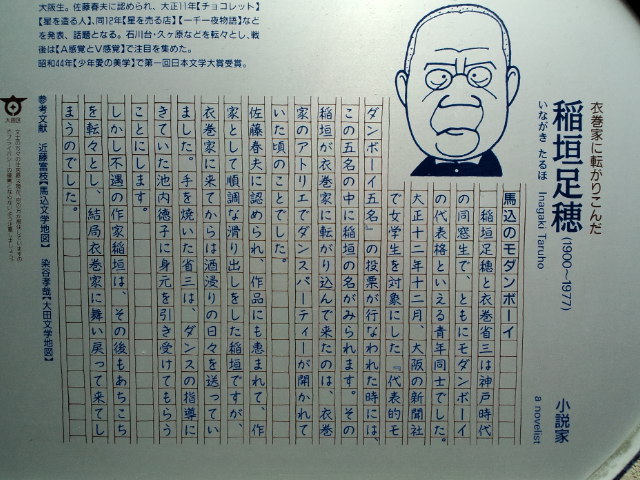 衣巻家に転がりこんだ
稲垣足穂(1900〜1977)
いながき たるほ Inagaki Taruho
小説家
a novelist
馬込のモダンボーイ
稲垣足穂と衣巻省三は神戸時代
の同窓生で、ともにモダンボーイ
の代表格といえる青年同士でした。
大正十二年十二月、大阪の新聞社
で女学生を対象にした『代表的モ
ダンボーイ五名』の投票が行なわれた時には、
この五名の中に稲垣の名がみられます。その
稲垣が衣巻家に転がり込んで来たのは、衣巻
家のアトリエでダンスパーティーが開かれて
いた頃のことでした。
佐藤春夫に認められ、作品にも恵まれて、作
家として順調な滑り出しをした稲垣ですが、
衣巻家に来てからは酒浸りの日々を送ってい
ました。手を焼いた省三は、ダンスの指導に
きていた池内徳子に身元を引き受けてもらう
ことにします。
しかし不遇の作家稲垣は、その後もあちこち
を転々とし、結局衣巻家に舞い戻って来てし
まうのでした。
大阪生。佐藤春夫に認められ、大正11年【チョコレット】
【星を造る人】、同12年【星を売る店】【一千一夜物語】など
を発表、話題となる。石川台・久ヶ原などを転々とし、戦
後は【A感覚とV感覚】で注目を集めた。
昭和44年【少年愛の美学】で第一回日本文学大賞受賞。
参考文献 近藤富枝【馬込文学地図】 染谷孝哉【大田文学地図】
大田区